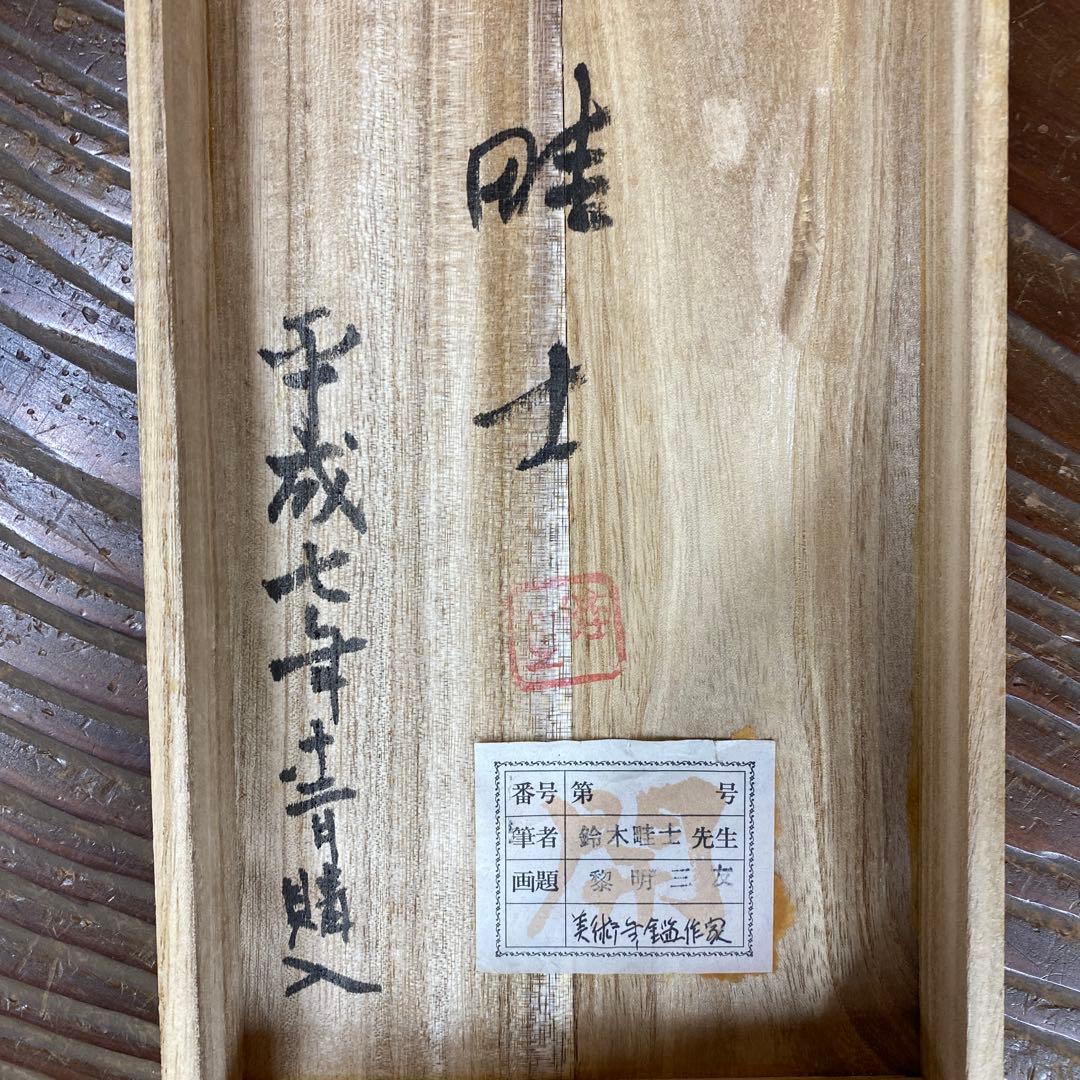 畦士
平成七年十二月購入
番号 第 号
筆者 鈴木畦士 先生
画題 黎明三友
美術年鑑作家